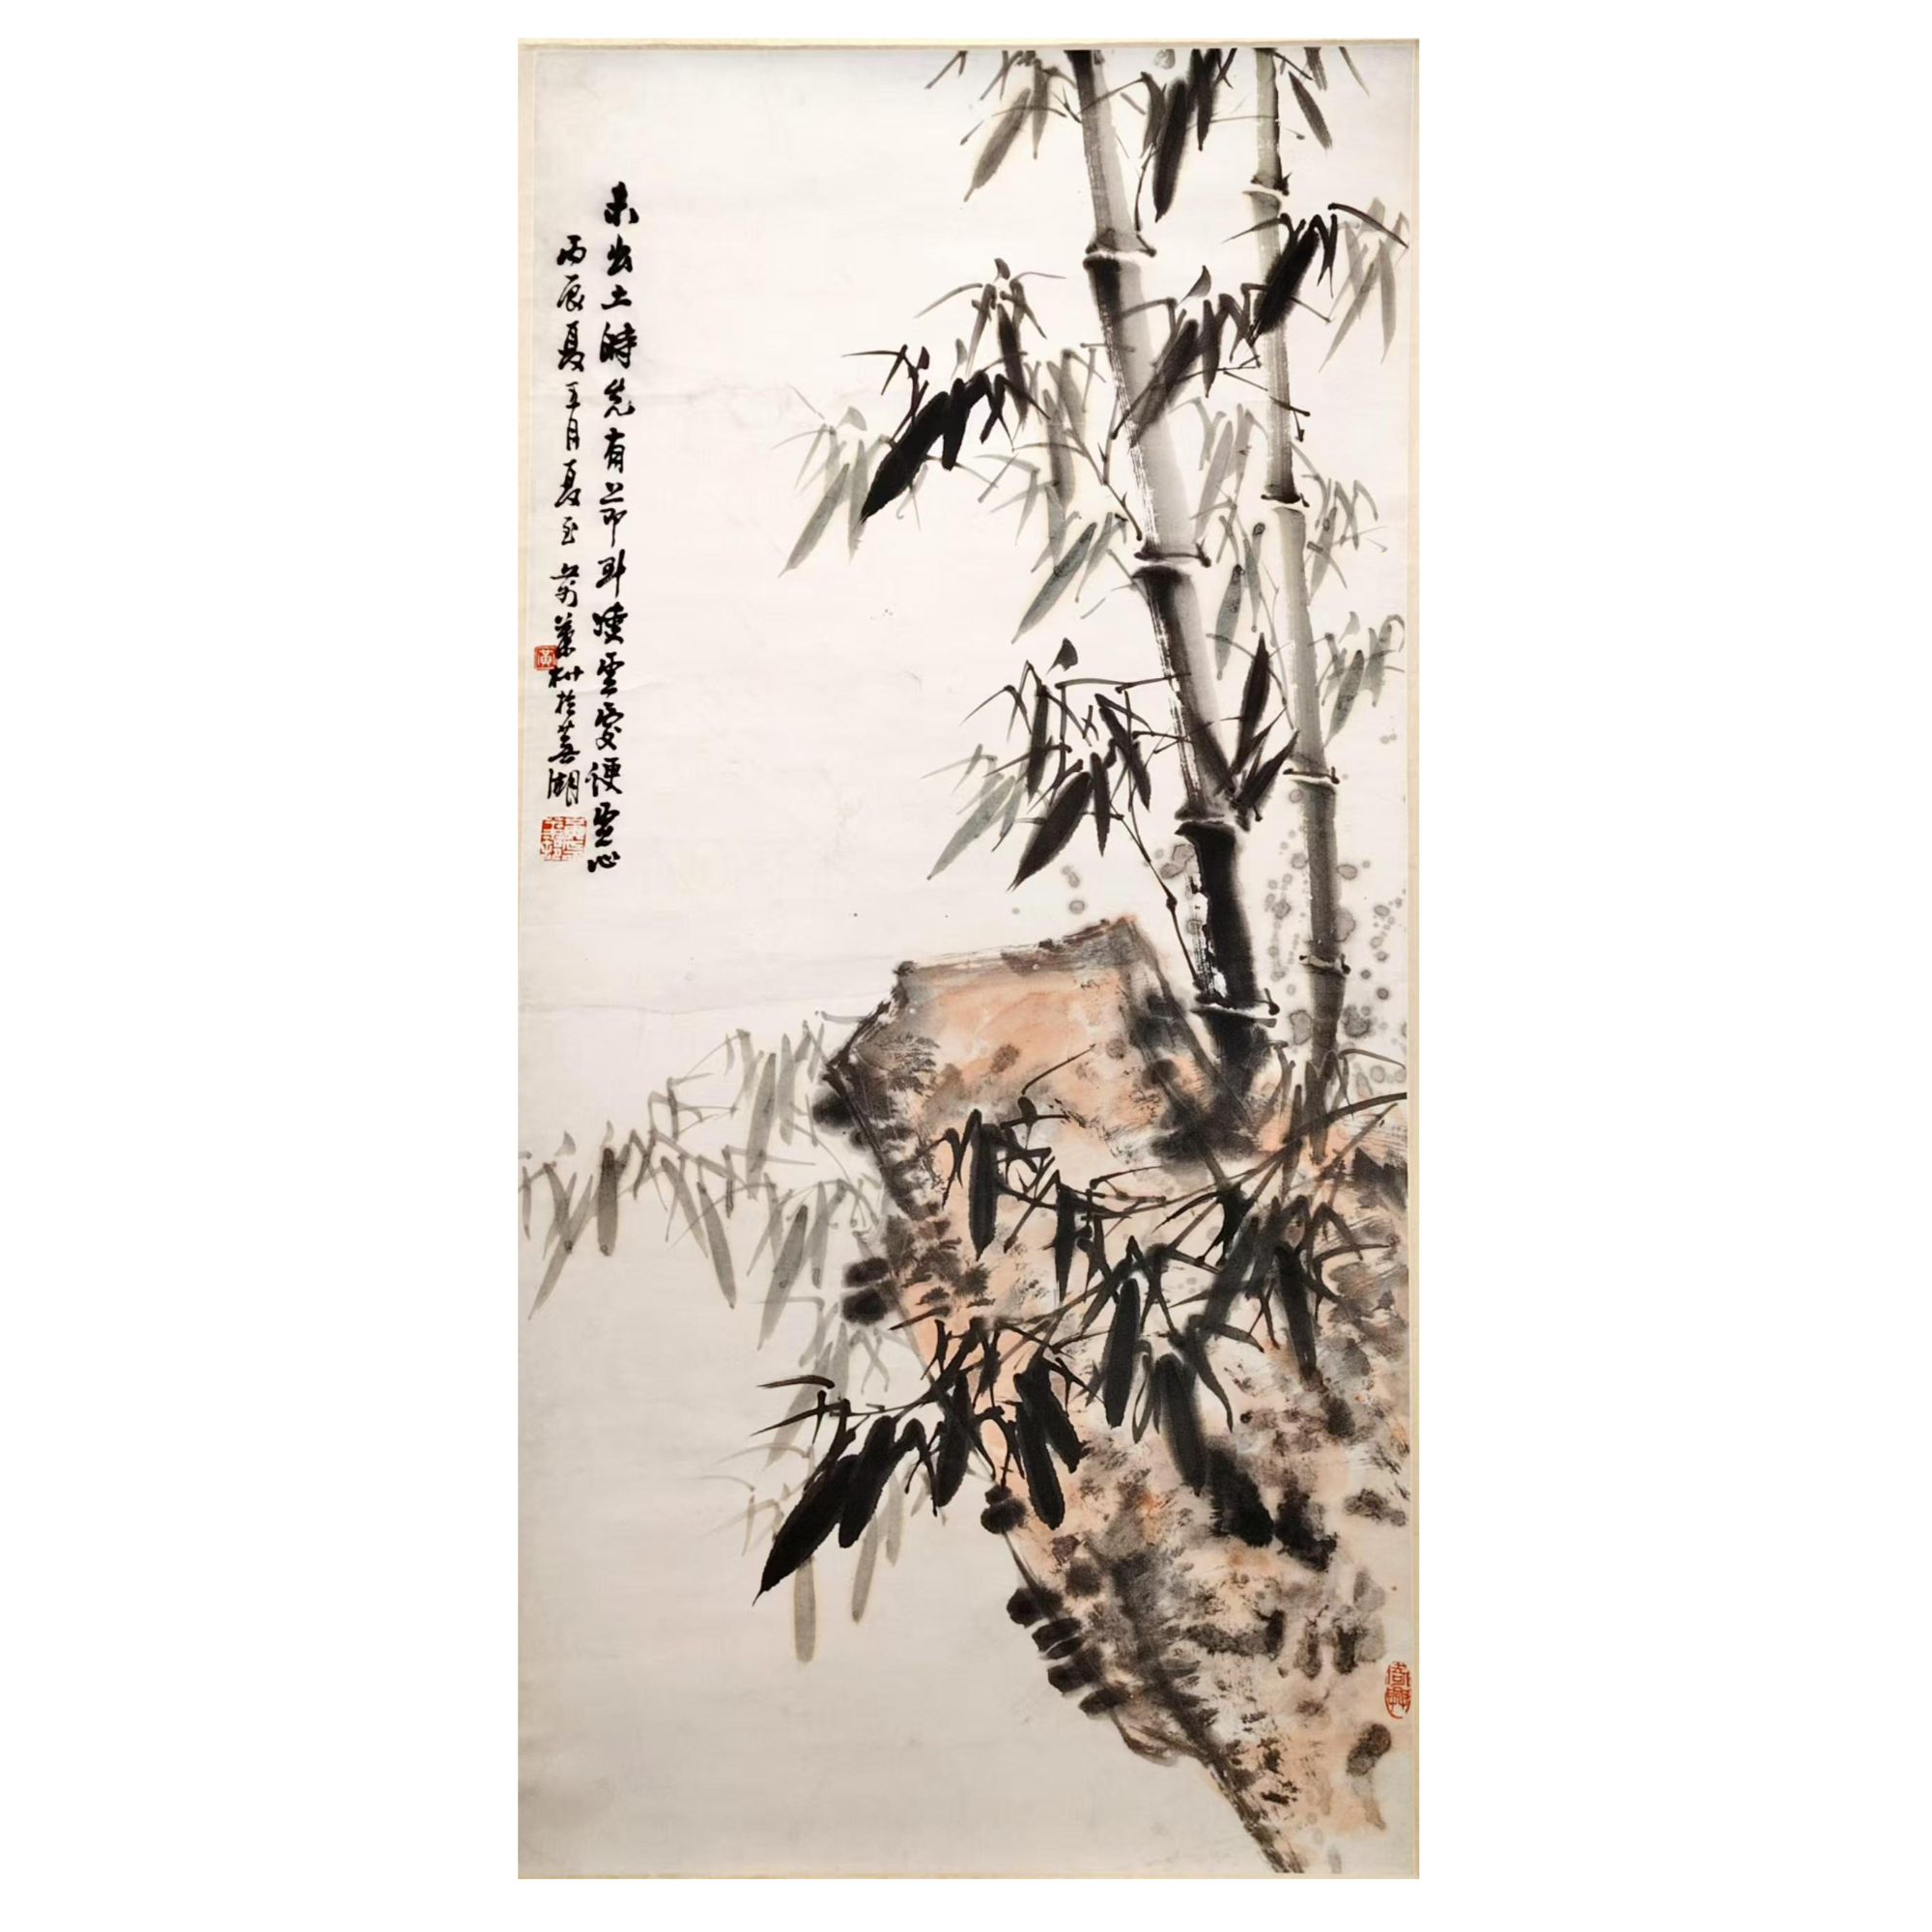 未出土時先有節到凌雲處便虛心
丙辰夏五月夏至前葉村於蕪湖
黃